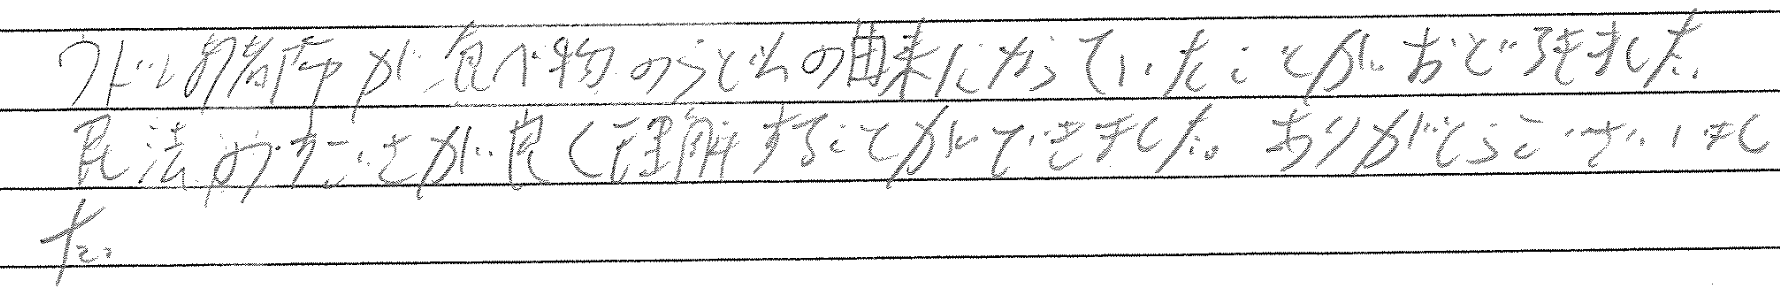 うどんの若布が食べ物のうどんの由来になっていたことがおどろきました。
民法のすごさが良く理解することができました。ありがとうございまし
た。